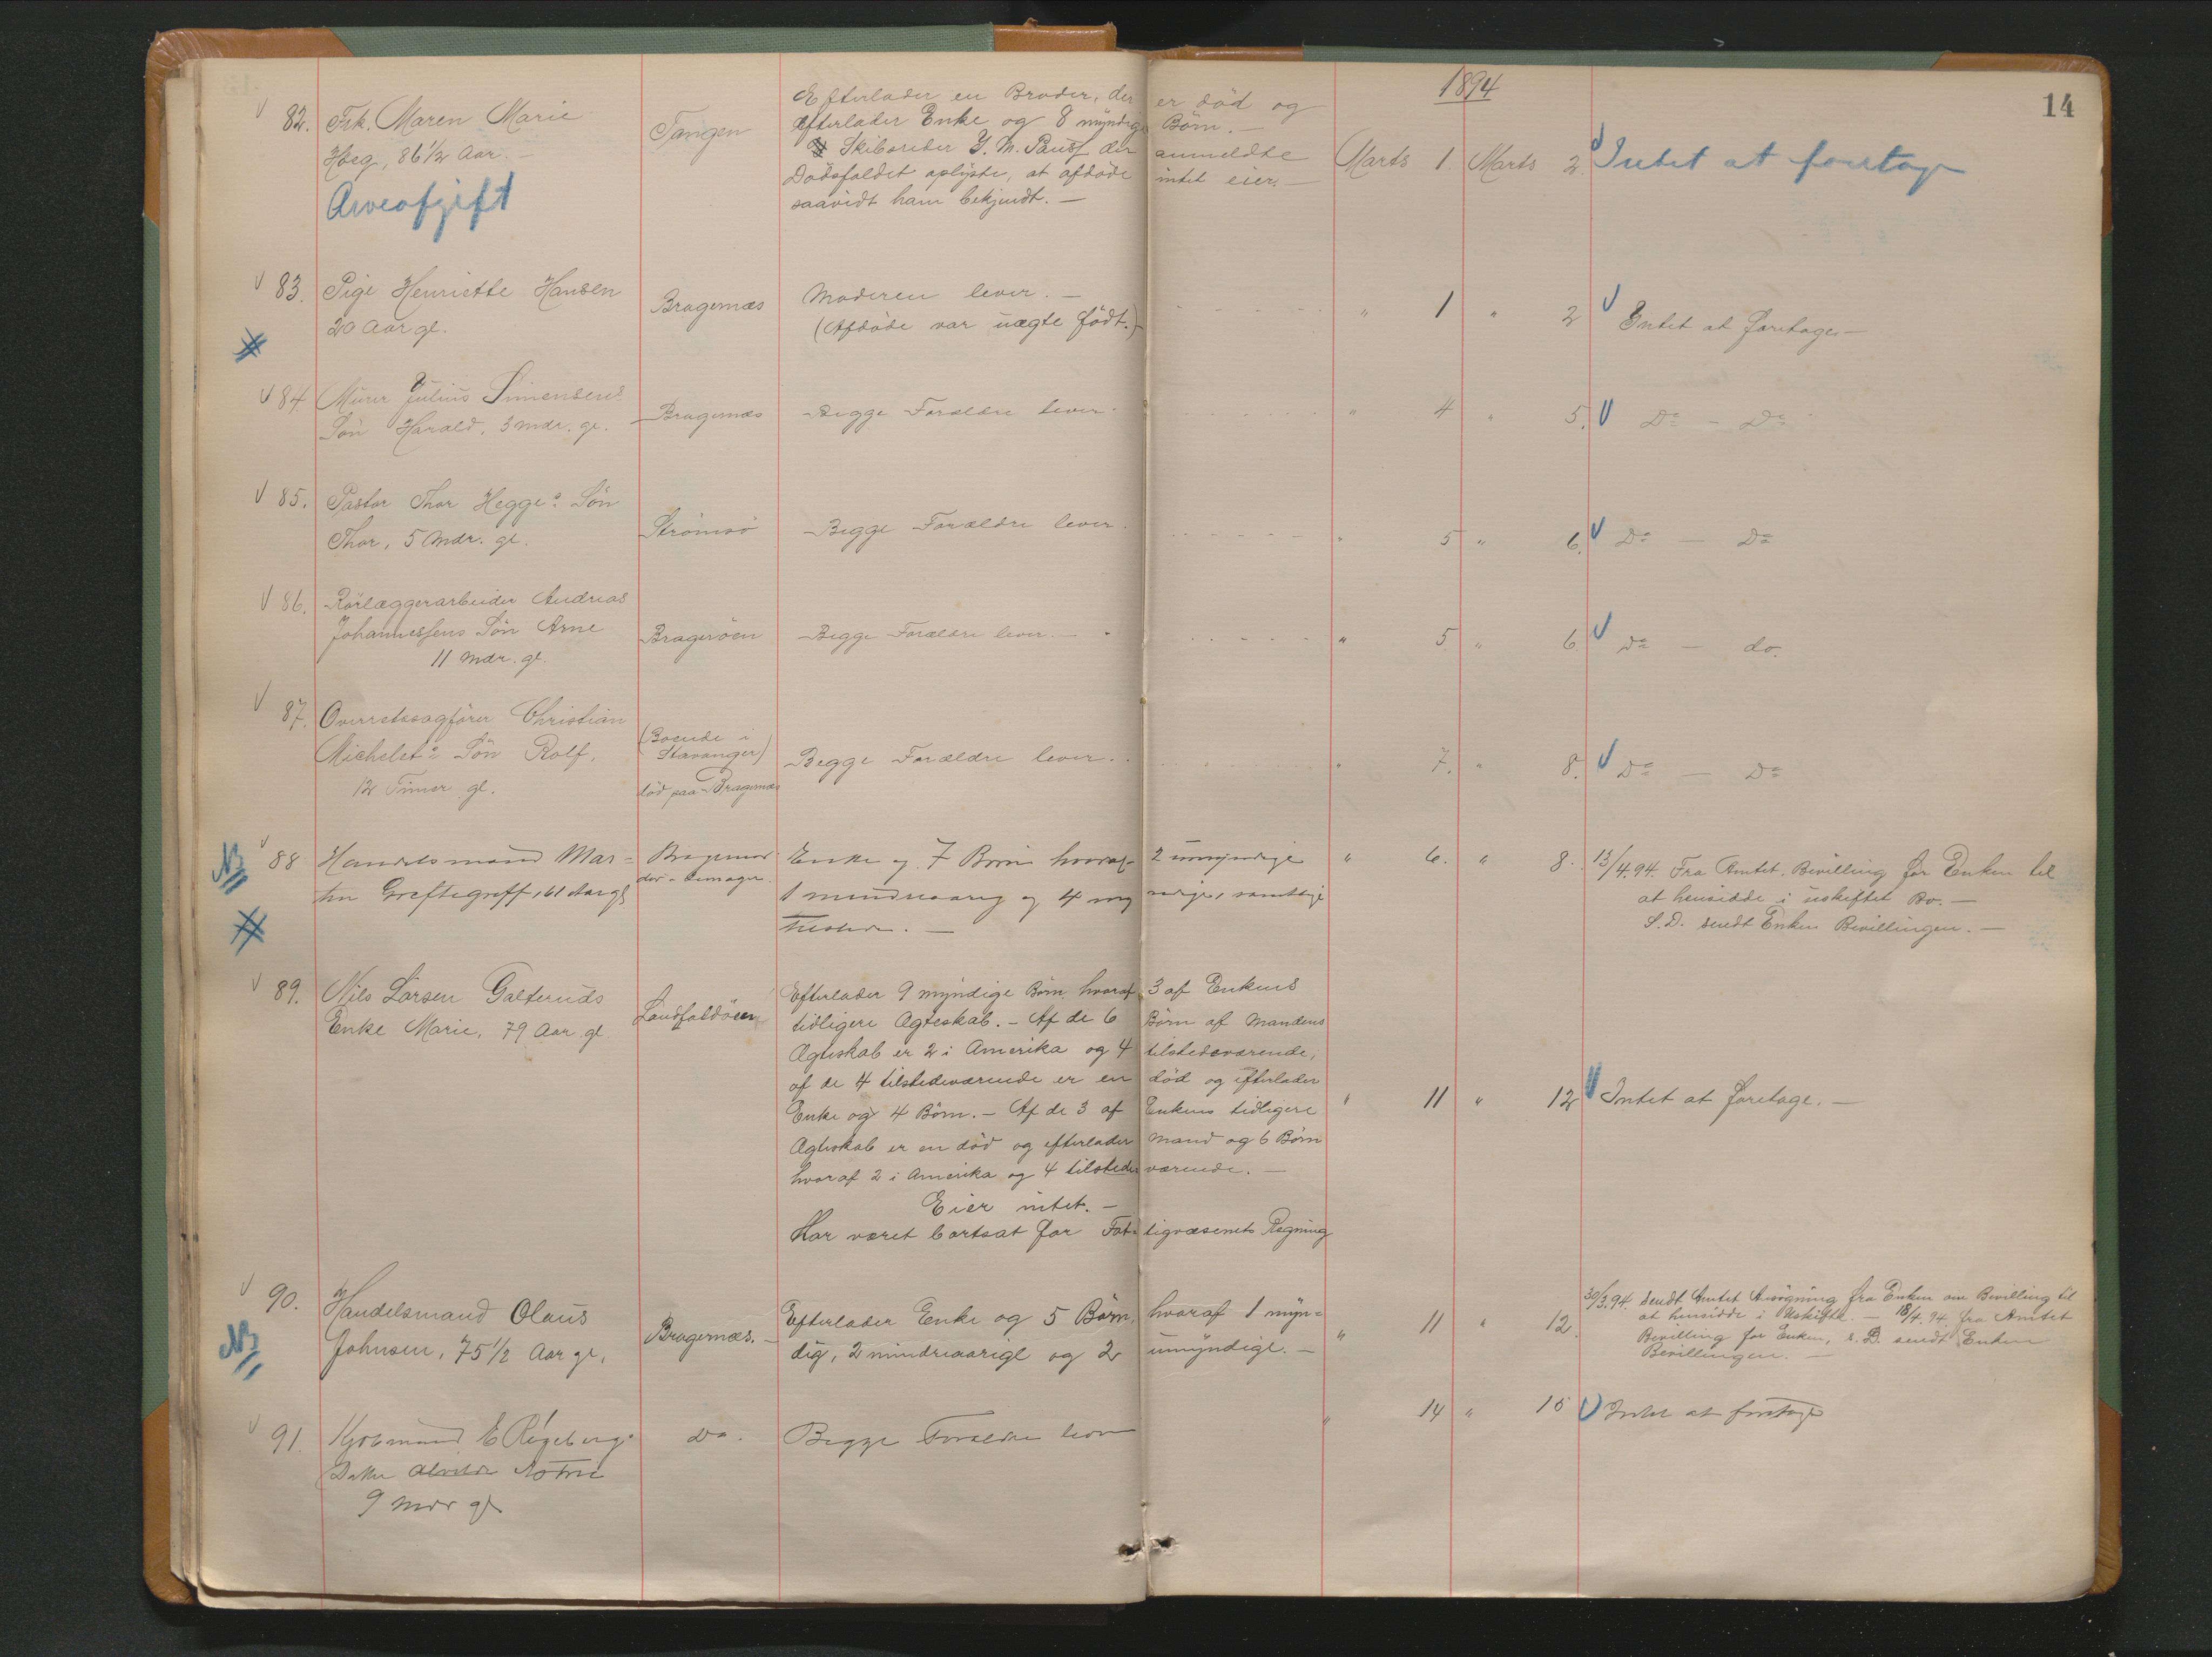 1894
14
82. Frk. Maren Marie
Høeg, 86 1/2 Aar. -
Arveafgift
Tangen
Efterlader en Broder, der er död og
efterlader Enke og 8 myndige Börn. -
Skibsreder J. N. Paus, der anmeldte
Dödsfaldet oplyste, at afdöde intet eier. -
saavidt ham bekjendt. -
Marts 1. Marts 2. Intet at foretage
83. Pige Henriette Hansen
20 Aar gl.
Bragernæs
Moderen lever. -
(Afdöde var uægte födt.) -
" 1 " 2 Intet at foretage. -
84. Murer Julius Simensens
Sön Harald, 3 Mdr. gl.
Bragernæs
Begge Forældre lever.
" 4 " 5. Do - Do
85. Pastor Thor Hegges Sön
Thor, 5 Mdr. gl.
Strömsö
Begge Forældre lever.
" 5 " 6. Do - Do
86. Rörlæggerarbeider Andreas
Johannessens Sön Arne
11 Mdr. gl.
Bragerøen
Begge Forældre lever. -
" 5 " 6 Do - do.
87. Overretssagförer Christian
Michelets Sön Rolf,
12 Timer gl.
(Boende i
Stavanger)
död paa Bragernæs
Begge Forældre lever.
" 7. " 8. Do - Do
NB 88 Handelsmand Mar=
tin Greftegreff, 61 Aar gl
Bragernæs
Enke og 7 Börn hvoraf 2 umyndige
1 mindreaarig og 4 myndige, samtlige
tilstede. -
" 6. " 8. 13/4.94. Fra Amtet, Bevilling for Enken til
at hensidde i uskiftet Bo. -
S. D. sendt Enken Bevillingen. -
89. Nils Larsen Galteruds
Enke Marie, 79 Aar gl.
Landfaldöen
Efterlader 9 myndige Börn, hvoraf 3 af Enkens
tidligere Ægteskab. - Af de 6 Börn af Mandens
Ægteskab er 2 i Amerika og 4 tilstedeværende,
af de 4 tilstedeværende er en död og efterlader
Enke og 4 Börn. - Af de 3 af Enkens tidligere
Ægteskab er en död og efterlader Mand og 6 Börn
hvoraf 2 i Amerika og 4 tilstedeværende. -
Eier intet. -
Har været bortsat for Fat=tigvæsenets Regning
" 11 " 12 Intet at foretage. -
NB 90. Handelsmand Olaus
Johnsen, 75 1/2 Aar gl.
Bragernæs. -
Efterlader Enke og 5 Börn, hvoraf 1 myn=
dig, 2 mindreaarige og 2 umyndige. -
" 11 " 12. 30/3.94. sendt Amtet Ansögning fra Enken om Bevilling til
at hensidde i Uskifte. - 18/4.94. fra Amtet
Bevilling for Enken, s. D. sendt Enken
Bevillingen. -
91. Kjöbmand E Rygebergs
Datter
9 Mdr gl
Do. Begge Forældre lever
" 14 " 15 Intet at foretage